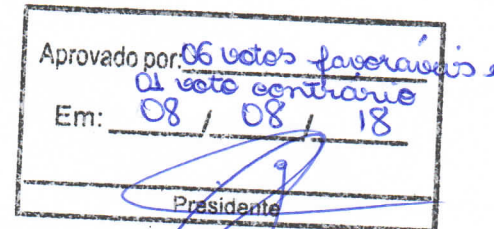 Aprovado por: 06 votos favoraveis e
01 voto contrário
Em: 08 / 08 / 18
Presidente